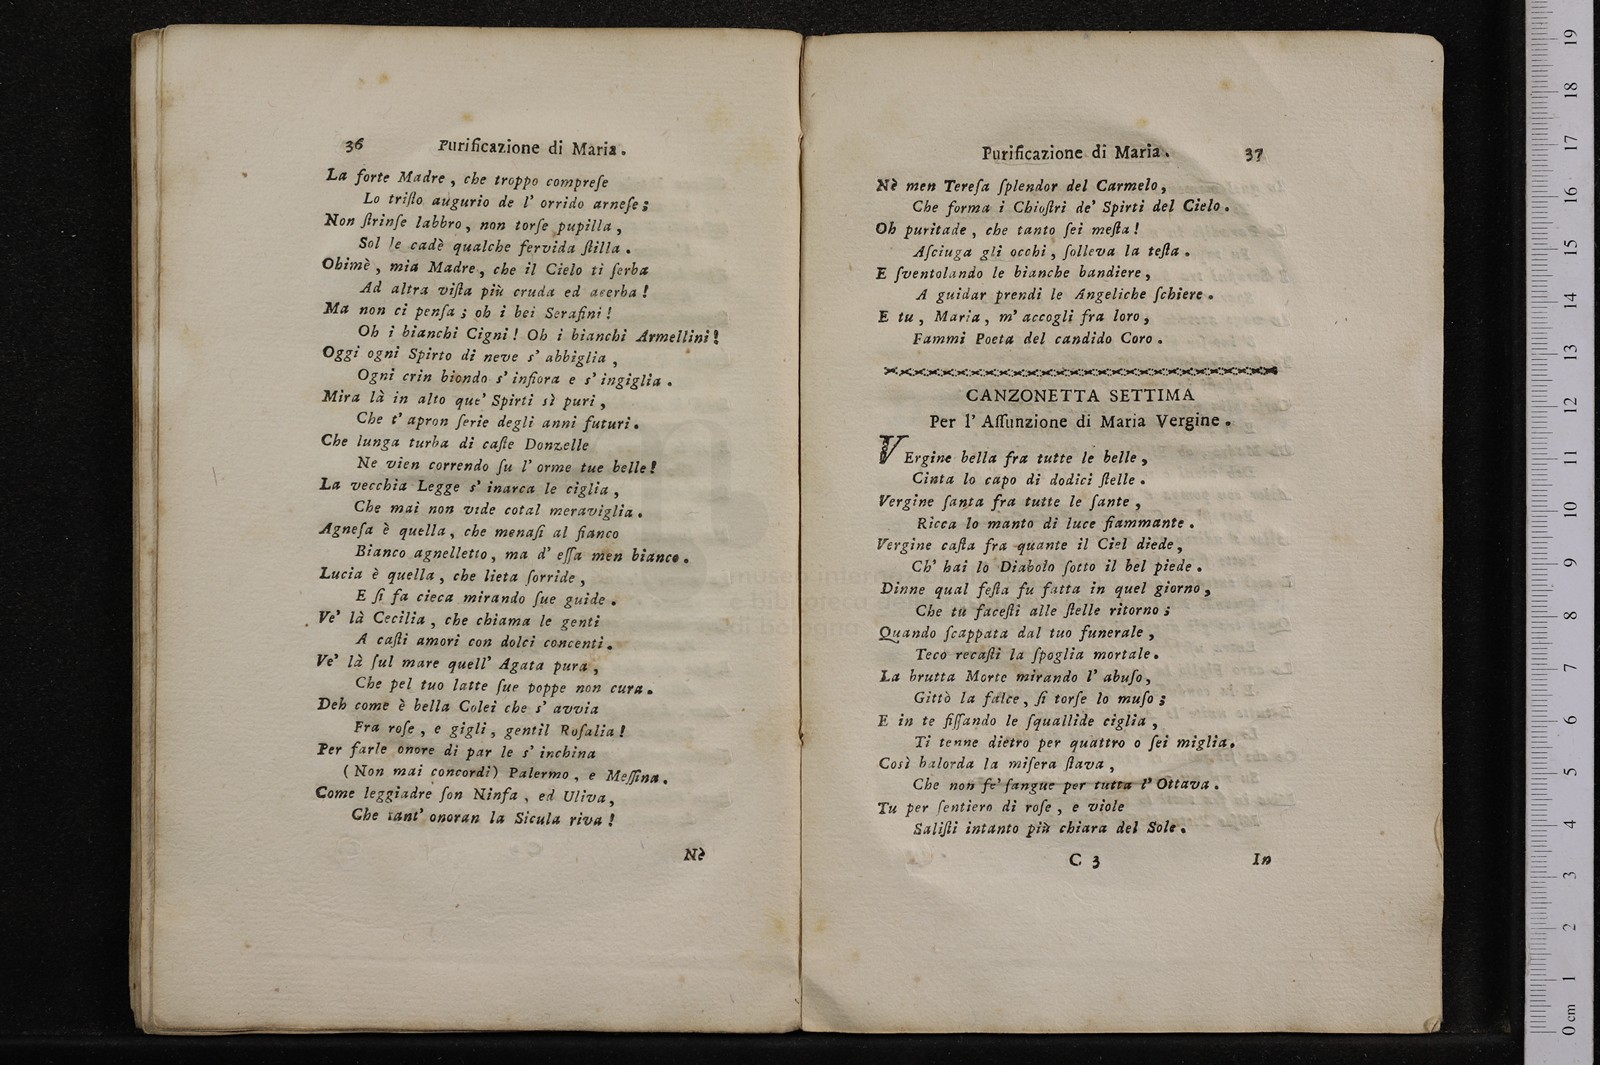 36 Purificazione di Maria.
La forte Madre, che troppo compreſe
Lo triſto augurio de l' orrido arneſe;
Non ſtrinſe labbro, non torſe pupilla,
Sol le cadè qualche fervida ſtilla.
Ohimè, mia Madre, che il Cielo ti ſerba
Ad altra viſta più cruda ed acerba!
Ma non ci penſa; oh i bei Serafini!
Oh i bianchi Cigni! Oh i bianchi Armellini!
Oggi ogni Spirto di neve s' abbiglia,
Ogni crin biondo s' infiora e s' ingiglia.
Mira là in alto que' Spirti sì puri,
Che t' apron ſerie degli anni futuri.
Che lunga turba di caſte Donzelle
Ne vien correndo ſu l' orme tue belle!
La vecchia Legge s' inarca le ciglia,
Che mai non vide cotal meraviglia.
Agneſa è quella, che menaſi al fianco
Bianco agnelletto, ma d' eſſa men bianco.
Lucia è quella, che lieta ſorride,
E ſi fa cieca mirando ſue guide.
Ve' là Cecilia, che chiama le genti
A caſti amori con dolci concenti.
Ve' là ſul mare quell' Agata pura,
Che pel tuo latte ſue poppe non cura.
Deh come è bella Colei che s' avvia
Fra roſe, e gigli, gentil Roſalia!
Per farle onore di par le s' inchina
(Non mai concordi) Palermo, e Meſſina.
Come leggiadre ſon Ninfa, ed Uliva,
Che tant' onoran la Sicula riva!
Nè
Purificazione di Maria. 37
Nè men Tereſa ſplendor del Carmelo,
Che forma i Chioſtri de' Spirti del Cielo.
Oh puritade, che tanto ſei meſta!
Aſciuga gli occhi, ſolleva la teſta.
E ſventolando le bianche bandiere,
A guidar prendi le Angeliche ſchiere.
E tu, Maria, m' accogli fra loro,
Fammi Poeta del candido Coro.
CANZONETTA SETTIMA
Per l' Aſſunzione di Maria Vergine.
VErgine bella fra tutte le belle,
Cinta lo capo di dodici ſtelle.
Vergine ſanta fra tutte le ſante,
Ricca lo manto di luce fiammante.
Vergine caſta fra quante il Ciel diede,
Ch' hai lo Diabolo ſotto il bel piede.
Dinne qual feſta fu fatta in quel giorno,
Che tu faceſti alle ſtelle ritorno;
Quando ſcappata dal tuo funerale,
Teco recaſti la ſpoglia mortale.
La brutta Morte mirando l' abuſo,
Gittò la falce, ſi torſe lo muſo;
E in te fiſſando le ſquallide ciglia,
Ti tenne dietro per quattro o ſei miglia.
Così balorda la miſera ſtava,
Che non fe' ſangue per tutta l' Ottava.
Tu per ſentiero di roſe, e viole
Saliſti intanto più chiara del Sole.
C 3 In
0 cm 1 2 3 4 5 6 7 8 9 10 11 12 13 14 15 16 17 18 19